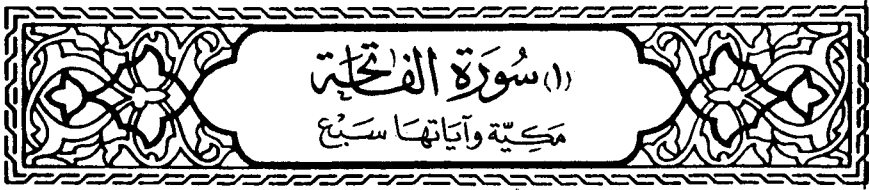 (١) سُورَة الفَاتِحَة
مَكيّة وآيَاتهَا سَبْع